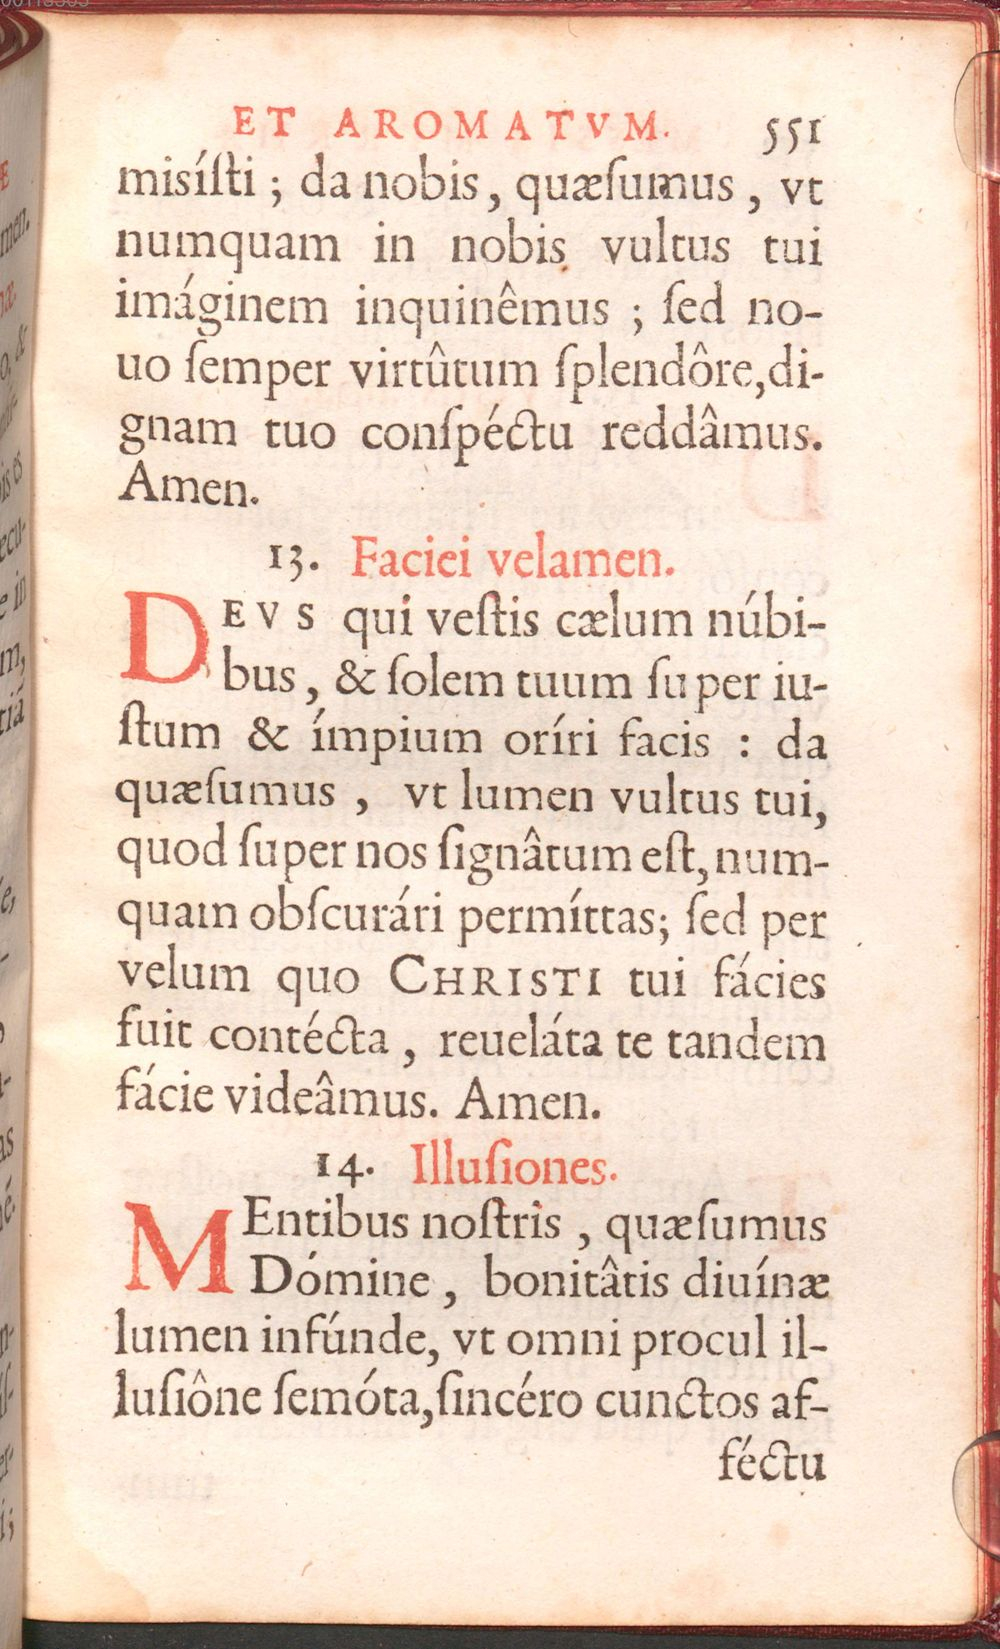 ET AROMATVM. 551
misíſti ; da nobis , quæſumus , vt
numquam in nobis vultus tui
imáginem inquinêmus ; ſed no-
uo ſemper virtûtum ſplendôre,di-
gnam tuo conſpéctu reddâmus.
Amen.
13. Faciei velamen.
DEVS qui veſtis cælum núbi-
bus , & ſolem tuum ſuper iu-
ſtum & ímpium oríri facis : da
quæſumus , vt lumen vultus tui,
quod ſuper nos ſignâtum eſt, num-
quam obſcurári permíttas; ſed per
velum quo CHRISTI tui fácies
fuit contécta , reueláta te tandem
fácie videâmus. Amen.
14. Illuſiones.
MEntibus noſtris , quæſumus
Dómine , bonitâtis diuínæ
lumen infúnde, vt omni procul il-
luſiône ſemóta,ſincéro cunctos af-
féctu